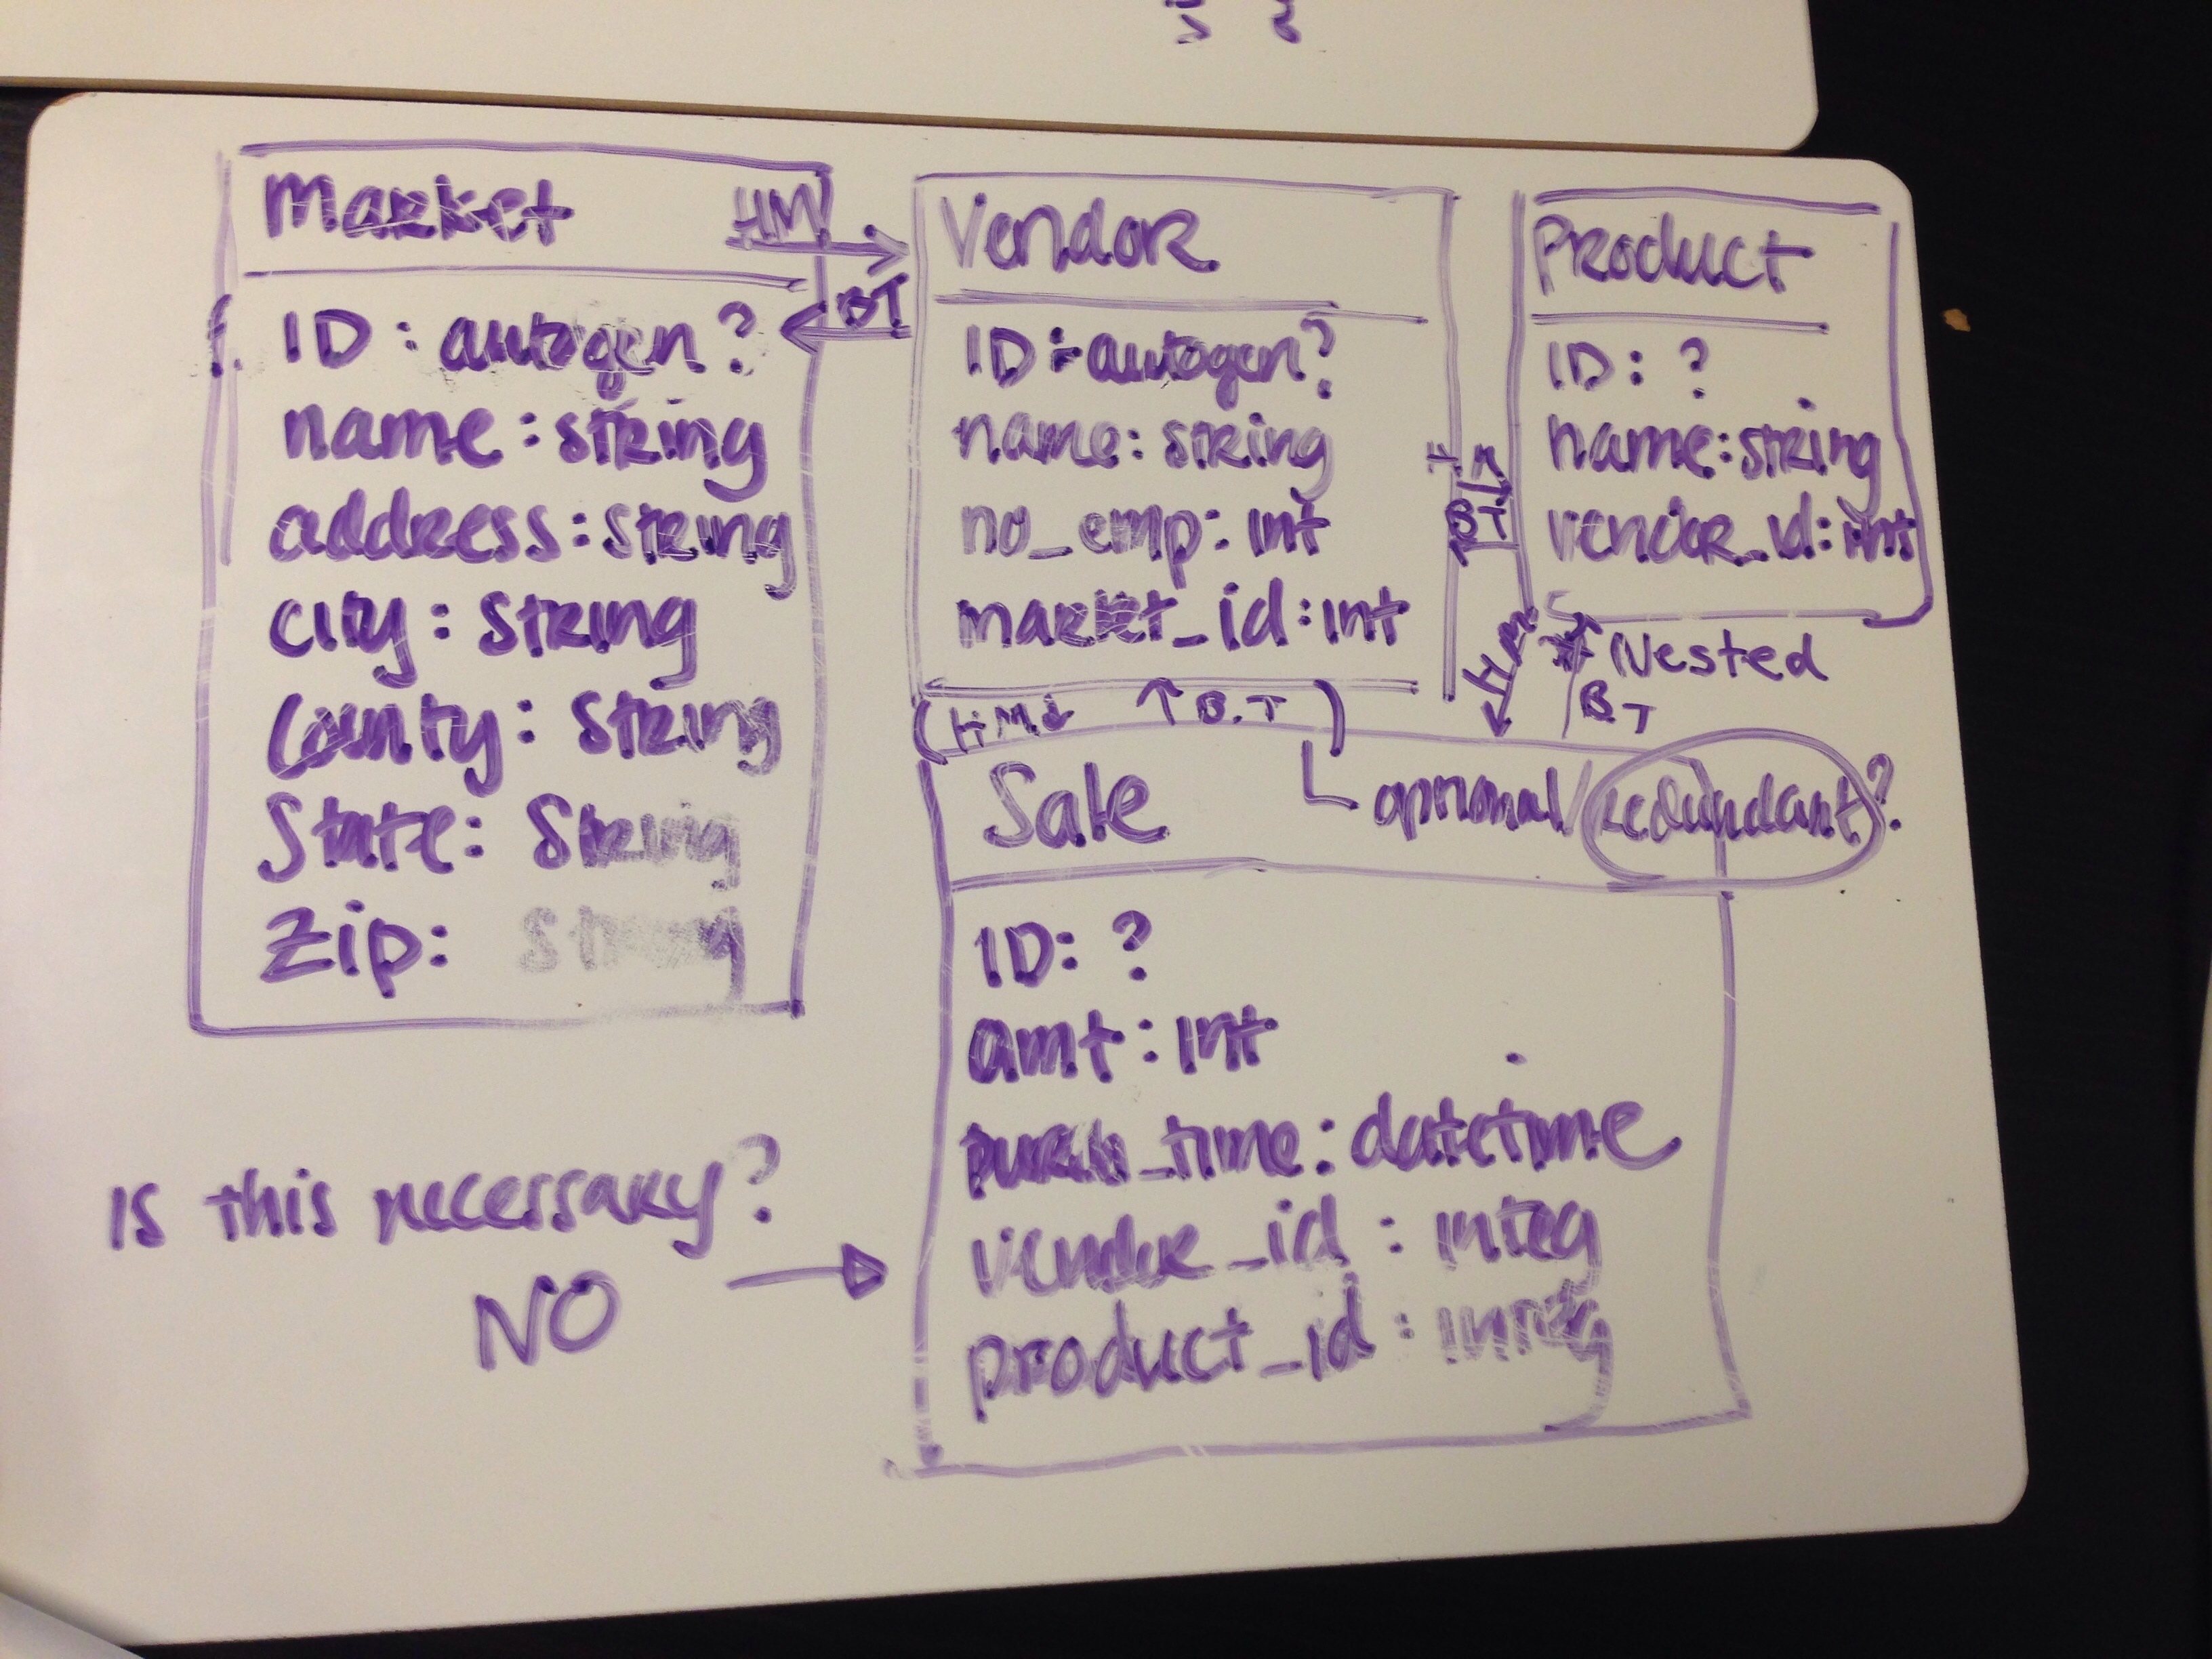 Market
HM
BT
ID: autogen?
name: string
address: string
city: string
County: string
State: String
Zip: String
Vendor
ID: autogen?
name: string
no_emp: int
market_id: int
HM
BT
Product
ID: ?
name: string
vendor_id: int
HM
* Nested
B.T
(HM↓ ↑B.T)
optional/redundant?
Sale
ID: ?
amt: int
purch_time: datetime
vendor_id: integ
product_id: integ
Is this necessary?
NO →